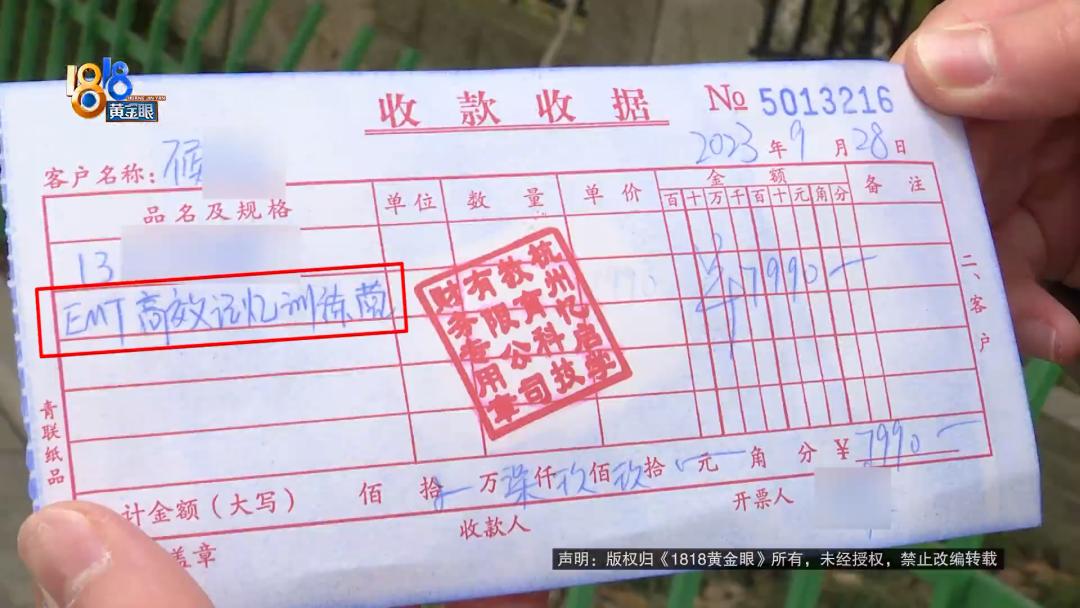 1818
黄金眼
收款收据 № 5013216
2023年9月28日
客户名称：侯
品名及规格 单位 数量 单价 金额 备注
百十万千百十元角分
13
EMT高效记忆训练营
￥7990
杭州忆启学
教育科技
有限公司
财务专用章
二、客户
青联纸品
计金额（大写） 佰 拾 万 柒仟 玖佰 玖拾 元 角 分 ￥7990
收款人 开票人
盖章
声明：版权归《1818黄金眼》所有，未经授权，禁止改编转载